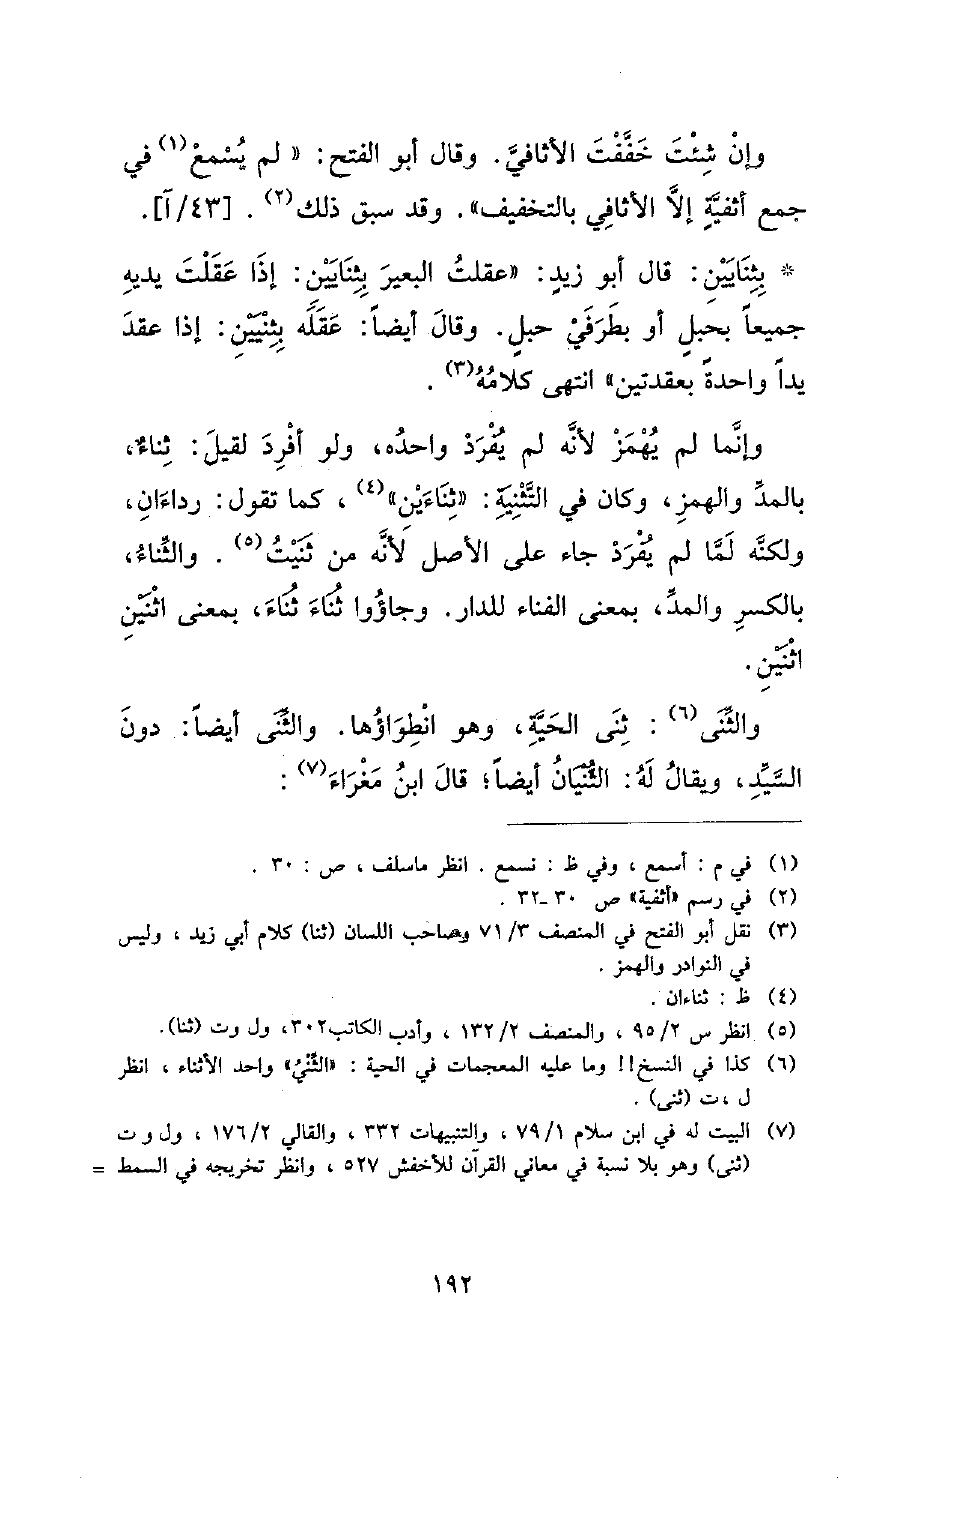 وإنْ شِئْتَ خَفَّفْتَ الأثافيَّ. وقال أبو الفتح: « لم يُسْمعْ(١) في
جمع أثفيَّةٍ إلاَّ الأثافِي بالتخفيف». وقد سبق ذلك(٢) . [٤٣/آ].
* بِثِنَايَيْنِ: قال أبو زيدٍ: «عقلتُ البعيرَ بِثِنَايَيْنِ: إذَا عَقَلْتَ يديهِ
جميعاً بحبلٍ أو بطَرَفَيْ حبلٍ. وقالَ أيضاً: عَقَلَه بِثِنْيَيْنِ: إذا عقدَ
يداً واحدةً بعقدتين» انتهى كلامُهُ(٣) .
وإنَّما لم يُهْمَزْ لأنَّه لم يُفْرَدْ واحدُه، ولو أفْرِدَ لقيلَ: ثِناءٌ،
بالمدِّ والهمزِ، وكان في التَّثْنِيَةِ: «ثِنَاءَيْن»(٤) ، كما تقول: رداءَانِ،
ولكنَّه لَمَّا لم يُفْرَدْ جاء على الأصل لأنَّه من ثَنَيْتُ(٥) . والثِّناءُ،
بالكسرِ والمدِّ، بمعنى الفناء للدار. وجاؤُوا ثُنَاءَ ثُنَاءَ، بمعنى اثْنَيْنِ
اثْنَيْنِ.
والثِّنَى(٦) : ثِنَى الحَيَّةِ، وهو انْطِوَاؤُها. والثِّنَى أيضاً: دونَ
السَّيِّدِ، ويقالُ لَهُ: الثُّنْيَانُ أيضاً؛ قالَ ابنُ مَغْرَاءَ(٧) :
(١) في م : أسمع ، وفي ظ : نسمع . انظر ماسلف ، ص : ٣٠ .
(٢) في رسم «أثفية» ص ٣٠ -٣٢ .
(٣) نقل أبو الفتح في المنصف ٧١/٣ وصاحب اللسان (ثنا) كلام أبي زيد ، وليس
في النوادر والهمز .
(٤) ظ : ثناءان .
(٥) انظر س ٩٥/٢ ، والمنصف ١٣٢/٢ ، وأدب الكاتب٣٠٢، ول وت (ثنا).
(٦) كذا في النسخ!! وما عليه المعجمات في الحية : «الثِّنْيُ» واحد الأثناء ، انظر
ل ،ت (ثنى) .
(٧) البيت له في ابن سلام ٧٩/١ ، والتنبيهات ٣٣٢ ، والقالي ١٧٦/٢ ، ول و ت
(ثنى) وهو بلا نسبة في معاني القرآن للأخفش ٥٢٧ ، وانظر تخريجه في السمط =
١٩٢